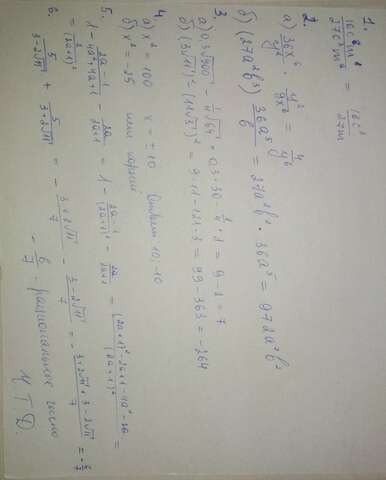 1.
16c⁸ / 27c⁶m = 16c² / 27m
2.
а) 36x⁶/y⁸ · y²/9x⁶ = 4/y⁶
б) (27a²b³) · 36a⁵/b = 27a²b² · 36a⁵ = 972a⁷b²
3.
а) 0,3√900 - 1/4√64 = 0,3·30 - 1/4·8 = 9-2 = 7
б) (3√11)² - (11√3)² = 9·11 - 121·3 = 99 - 363 = -264
4.
а) x² = 100 x = ±10 Ответ 10; -10
б) x² = -25 нет корней
5.
1 - (2a-1)/(4a²+4a+1) - 2a/(2a+1) = 1 - (2a-1)/(2a+1)² - 2a/(2a+1) = ((2a+1)² - 2a+1 - 4a² - 2a)/(2a+1)² =
= 2/(2a+1)²
6.
5/(3-2√11) + 5/(3+2√11) = - (3+2√11)/7 - (3-2√11)/7 = - (3+2√11+3-2√11)/7 = - 6/7
- 6/7 - рациональное число
ЧТД.